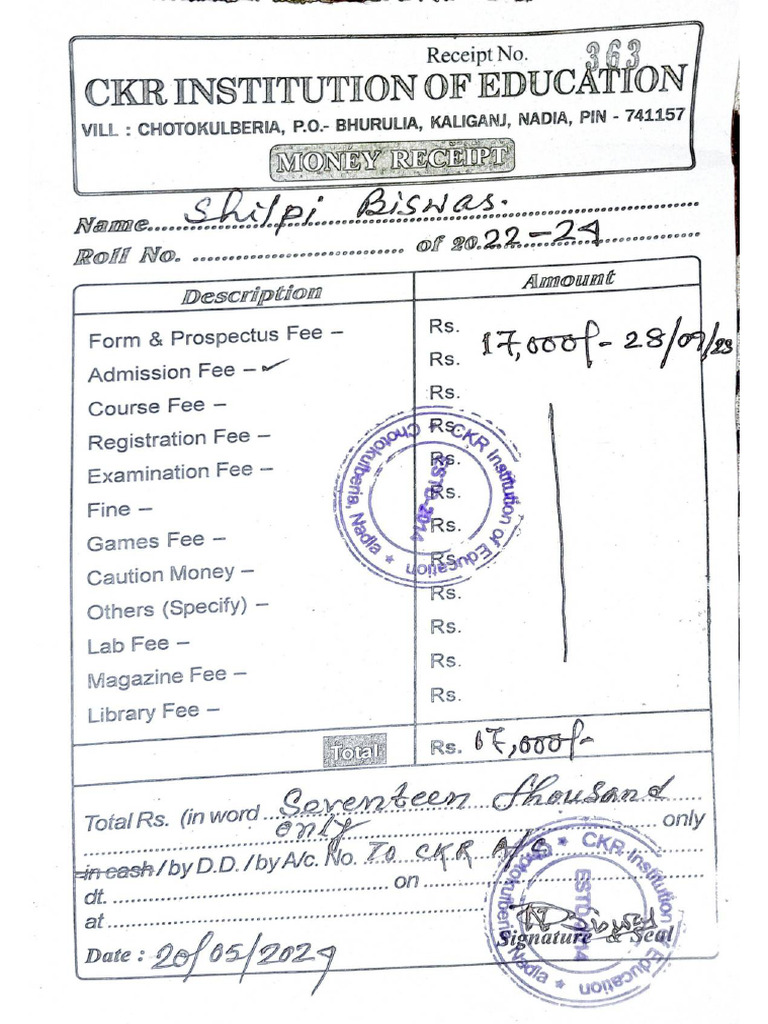 Receipt No. 363
CKR INSTITUTION OF EDUCATION
VILL : CHOTOKULBERIA, P.O.- BHURULIA, KALIGANJ, NADIA, PIN - 741157
MONEY RECEIPT
Name Shilpi Biswas.
Roll No. of 20 22-24
Description Amount
Form & Prospectus Fee – Rs.
Admission Fee – ✓ Rs. 17,000/- 28/09/23
Course Fee – Rs.
Registration Fee – Rs.
Examination Fee – Rs.
Fine – Rs.
Games Fee – Rs.
Caution Money – Rs.
Others (Specify) – Rs.
Lab Fee – Rs.
Magazine Fee – Rs.
Library Fee – Rs.
CKR Institution of Education * Chotokulberia, Nadia *
ESTD-2014
Total Rs. 17,000/-
Total Rs. (in word Seventeen thousand
only only
in cash / by D.D. / by A/c. No. To CKR A/c
dt. on
at
Signature & Seal
Date : 20/05/2024
CKR Institution of Education * Chotokulberia, Nadia *
ESTD-2014